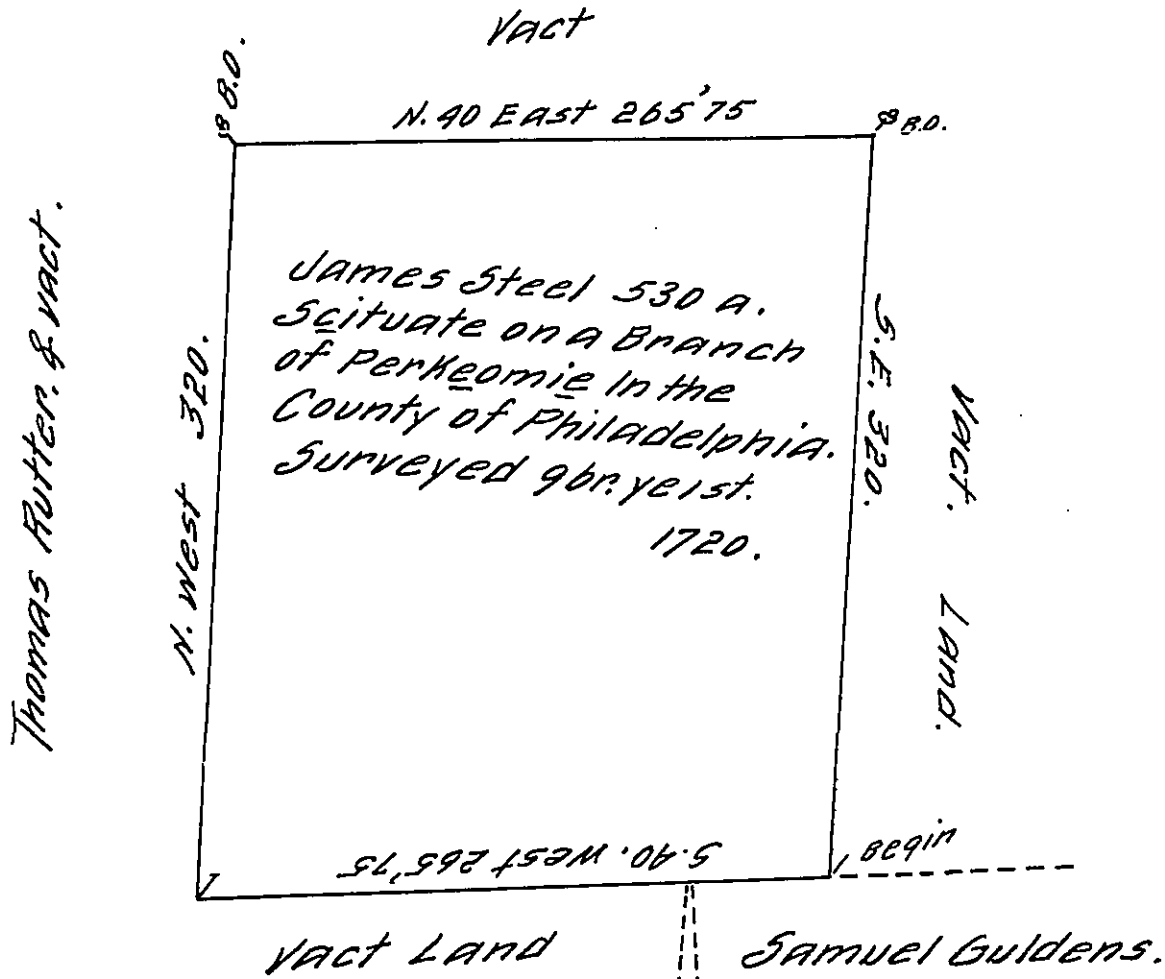 Vact
B.O.
N. 40 East 265'75
B.O.
Thomas Rutter. & vact.
N. West 320.
James Steel 530 a.
Scituate on a Branch
of Perkeomie In the
County of Philadelphia.
Surveyed 9br. ye 1st.
1720.
S.E. 320.
Vact. Land.
S.40. West 265'75
Begin
Vact Land
Samuel Guldens.